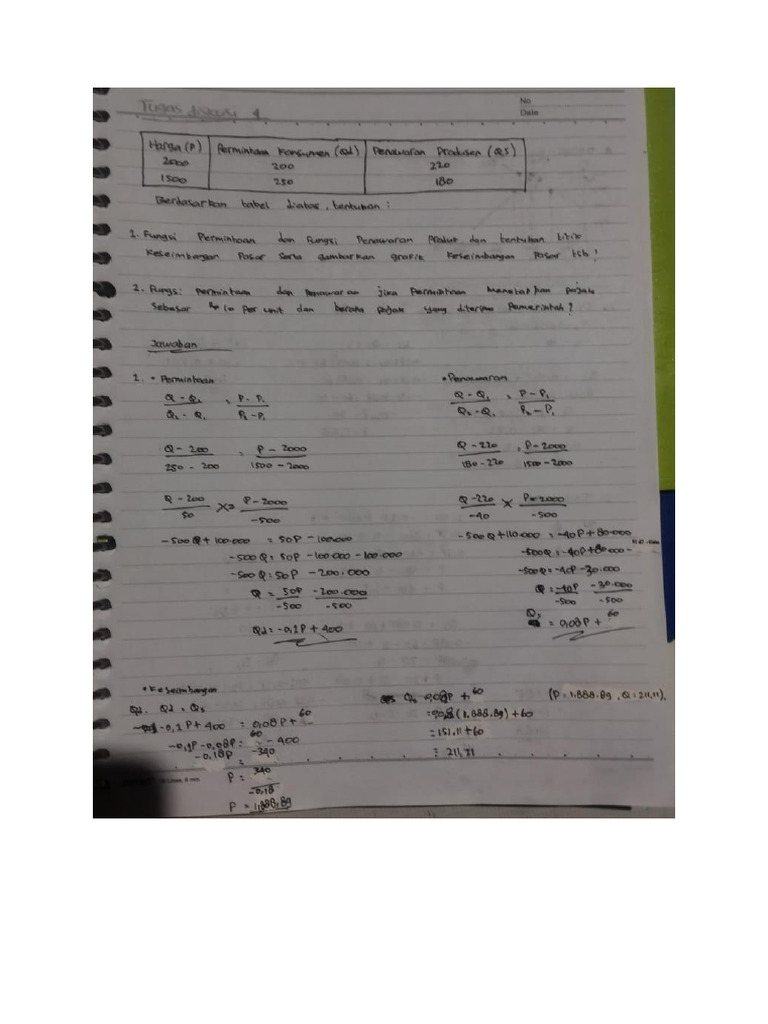 Tugas diskusi 4
No
Date
Harga (P) Permintaan Konsumen (Qd) Penawaran Produsen (QS)
2000 200 220
1500 250 180
Berdasarkan tabel diatas, tentukan :
1. Fungsi Permintaan dan Fungsi Penawaran Produk dan tentukan titik
Keseimbangan Pasar serta gambarkan grafik Keseimbangan Pasar tsb!
2. Fungsi permintaan dan penawaran jika Pemerintah menetapkan pajak
sebesar Rp 10 per unit dan berapa pajak yang diterima Pemerintah?
Jawaban
1. • Permintaan
Q - Q1 = P - P1
Q2 - Q1 P2 - P1
Q - 200 = P - 2000
250 - 200 1500 - 2000
Q - 200 X= P - 2000
50 -500
-500Q + 100.000 = 50P - 100.000
-500Q = 50P - 100.000 - 100.000
-500Q = 50P - 200.000
Q = 50P -200.000
-500 -500
Qd = -0,1P + 400
• Penawaran
Q - Q1 = P - P1
Q2 - Q1 P2 - P1
Q - 220 = P - 2000
180 - 220 1500 - 2000
Q - 220 X P - 2000
-40 -500
-500Q + 110.000 = -40P + 80.000
-500Q = -40P + 80.000 - 110.000
-500Q = -40P - 30.000
Q = -40P -30.000
-500 -500
Qs = 0,08P + 60
• Keseimbangan
Qd = Qs
-0,1P + 400 = 0,08P + 60
-0,1P - 0,08P = 60 - 400
-0,18P = -340
P = 340
-0,18
P = 1,888,89
Qs 0,08P + 60
= 0,08 (1.888.89) + 60
= 151.11 + 60
= 211,11
(P = 1.888.89, Q = 211,11).